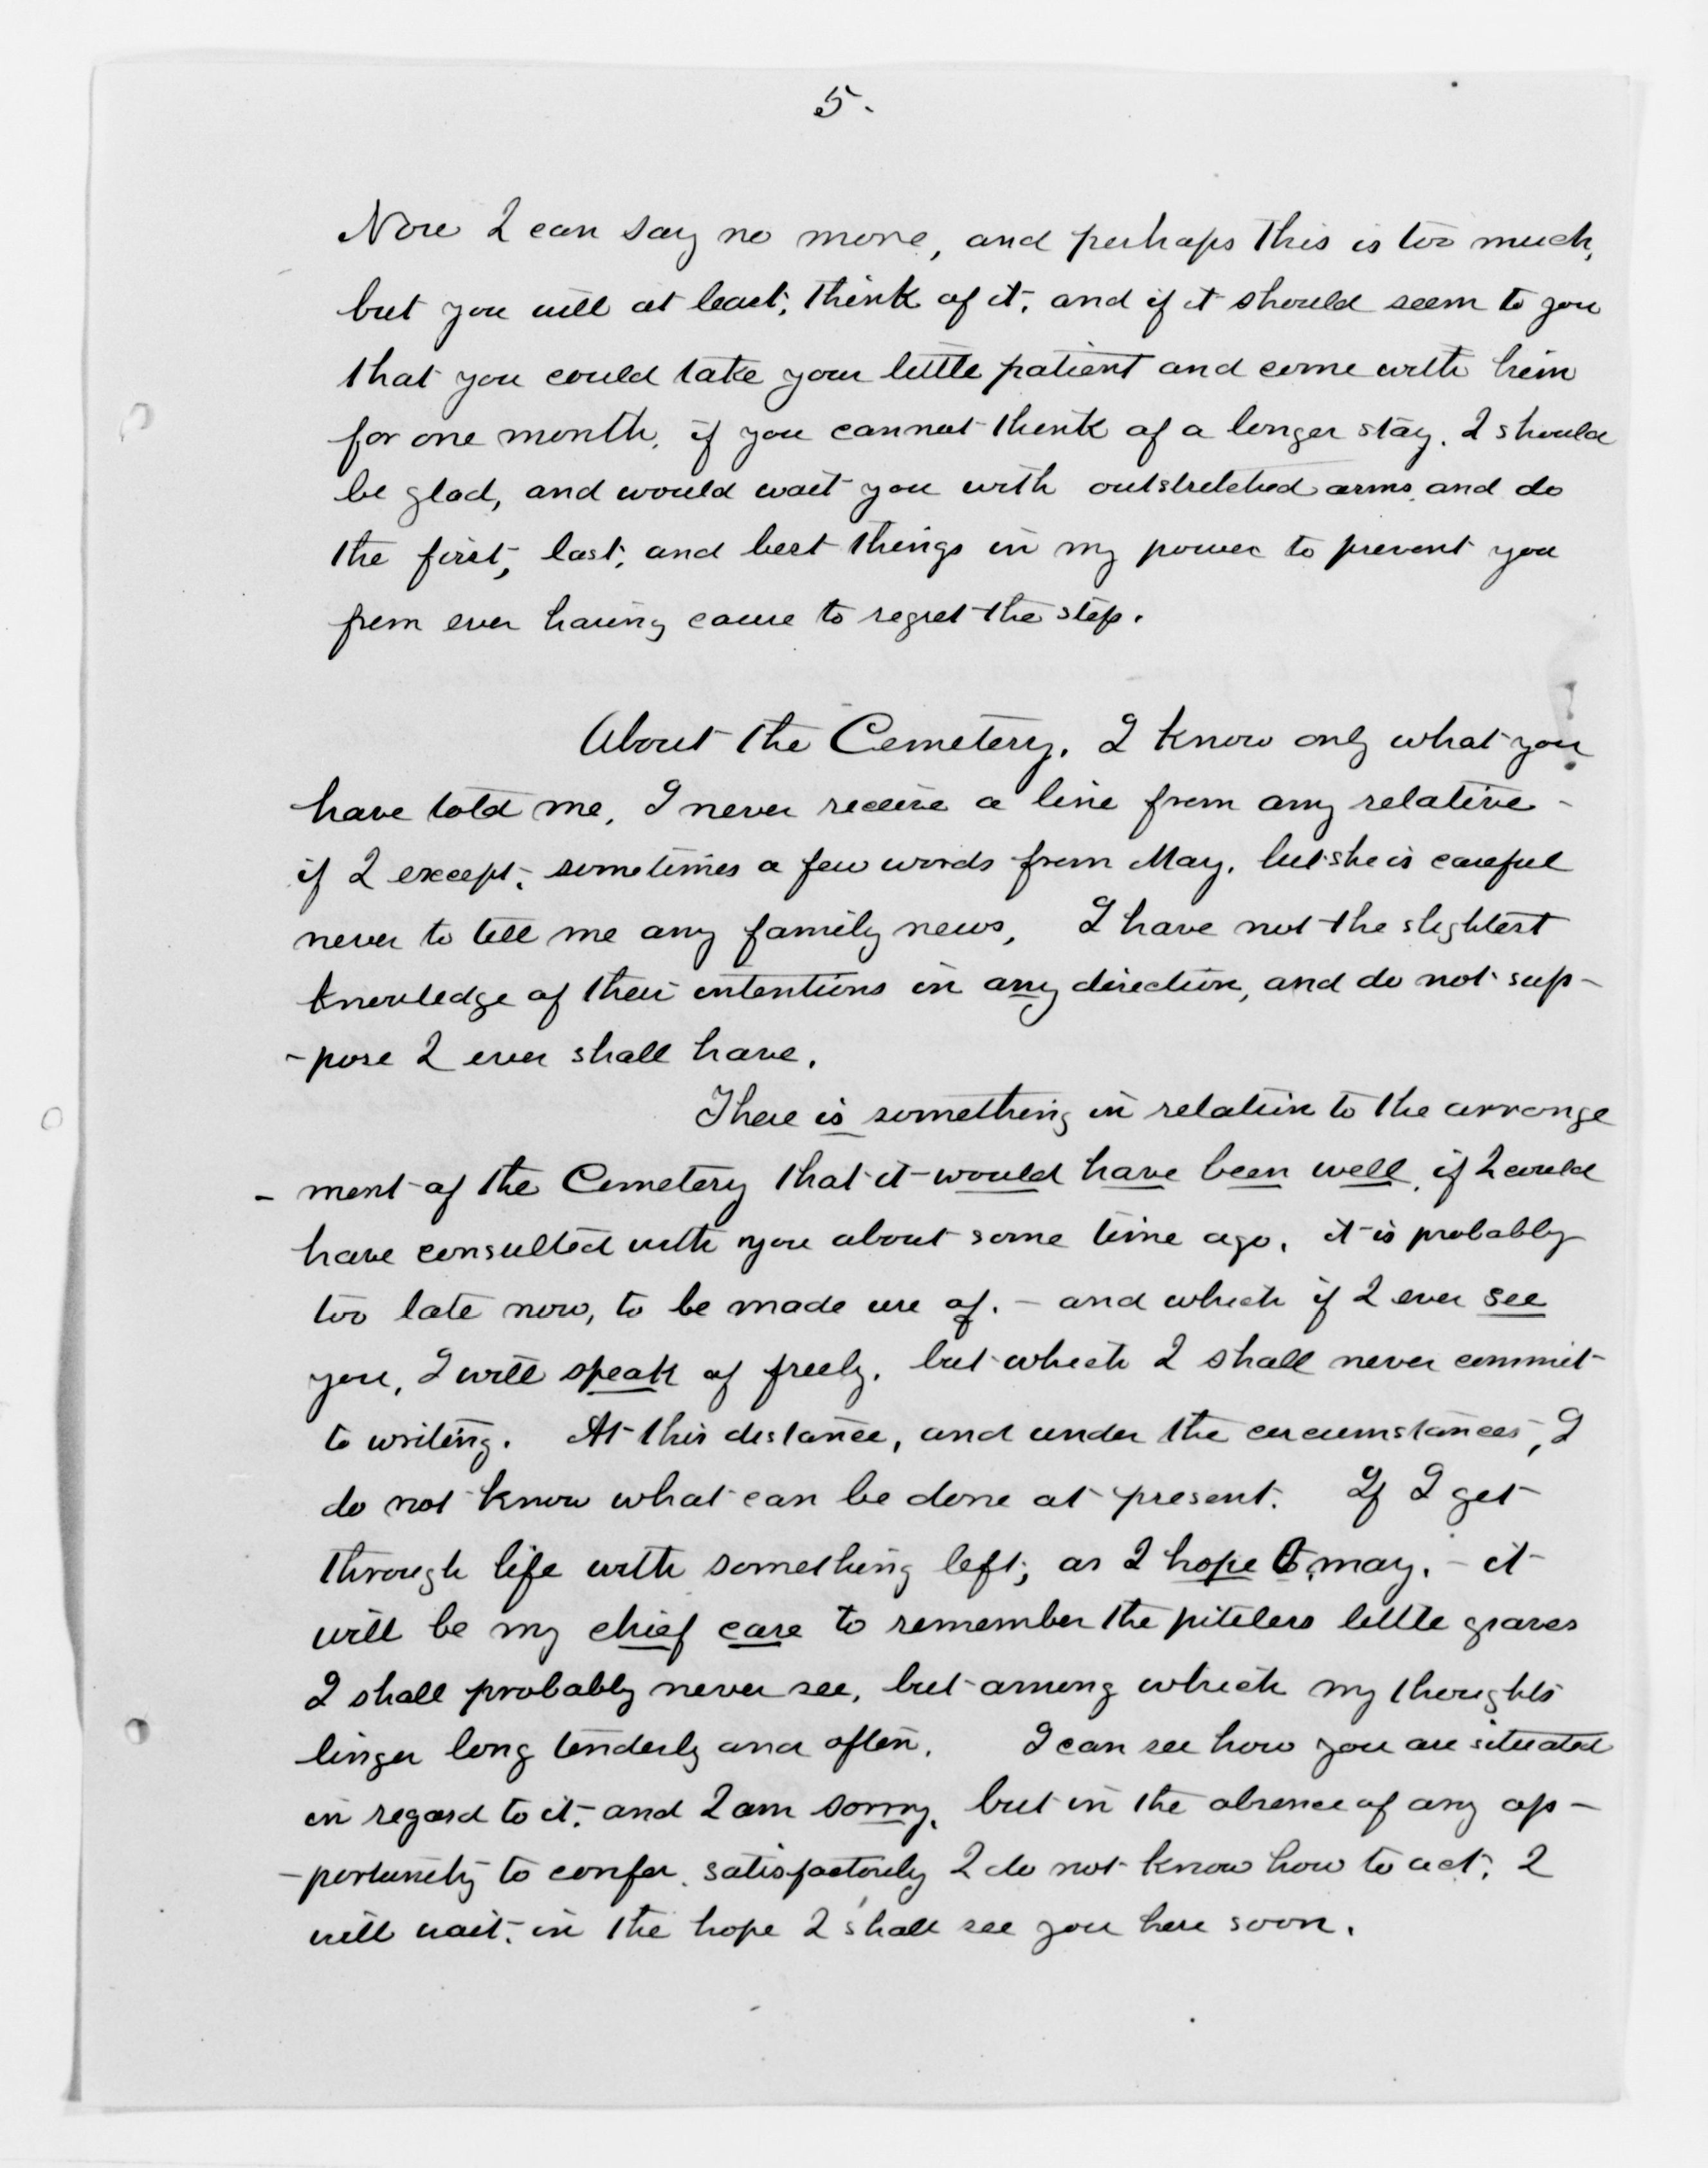 5.
Now I can say no more, and perhaps this is too much,
but you will at least, think of it, and if it should seem to you
that you could take your little patient and come with him
for one month, if you cannot think of a longer stay. I should
be glad, and would wait you with outstretched arms and do
the first, last, and best things in my power to prevent you
from ever having cause to regret the step.
About the Cemetery. I know only what you
have told me, I never receive a line from any relative -
if I except, sometimes a few words from May, but she is careful
never to tell me any family news, I have not the slightest
knowledge of their intentions in any direction, and do not sup-
-pose I ever shall have.
There is something in relation to the arrange
- ment of the Cemetery that it would have been well, if I could
have consulted with you about some time ago, it is probably
too late now, to be made use of. - and which if I ever see
you, I will speak of freely, but which I shall never commit
to writing. At this distance, and under the circumstances, I
do not know what can be done at present. If I get
through life with something left, as I hope I may, - it
will be my chief care to remember the pitiless little graves
I shall probably never see, but among which my thoughts
linger long tenderly and often. I can see how you are situated
in regard to it, and I am sorry, but in the absence of any op-
-portunity to confer satisfactorily I do not know how to act, I
will wait, in the hope I shall see you here soon.